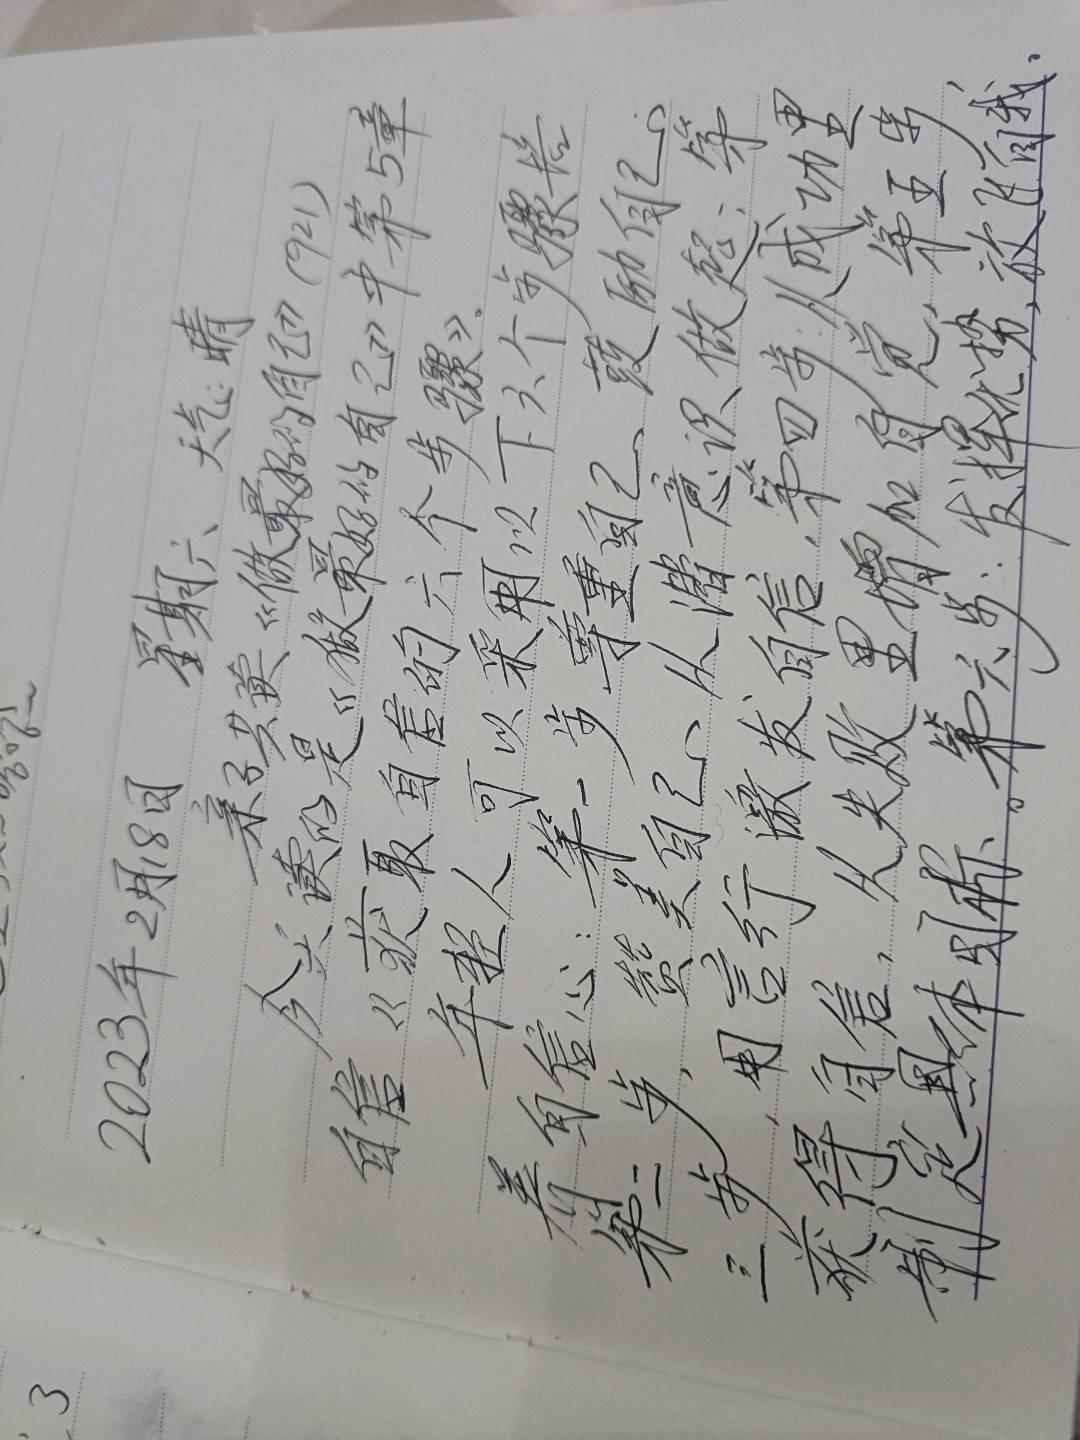 2023年2月18日 星期六 天气:晴
亲子共读《做最好的自己》(921)
今天读的是《做最好的自己》中第5章
自信《获取自信的六个步骤》.
年轻人可以采用以下六个步骤培
养自信心:第一步 尊重自己 鼓励自己
第二步,赞美自己、从潜意识做起;第
三步,用言行激发自信,第四步:从成功里
获得自信,从失败里增加自觉,第五步
制定具体目标。第六步:发挥优势,放飞自我.
3